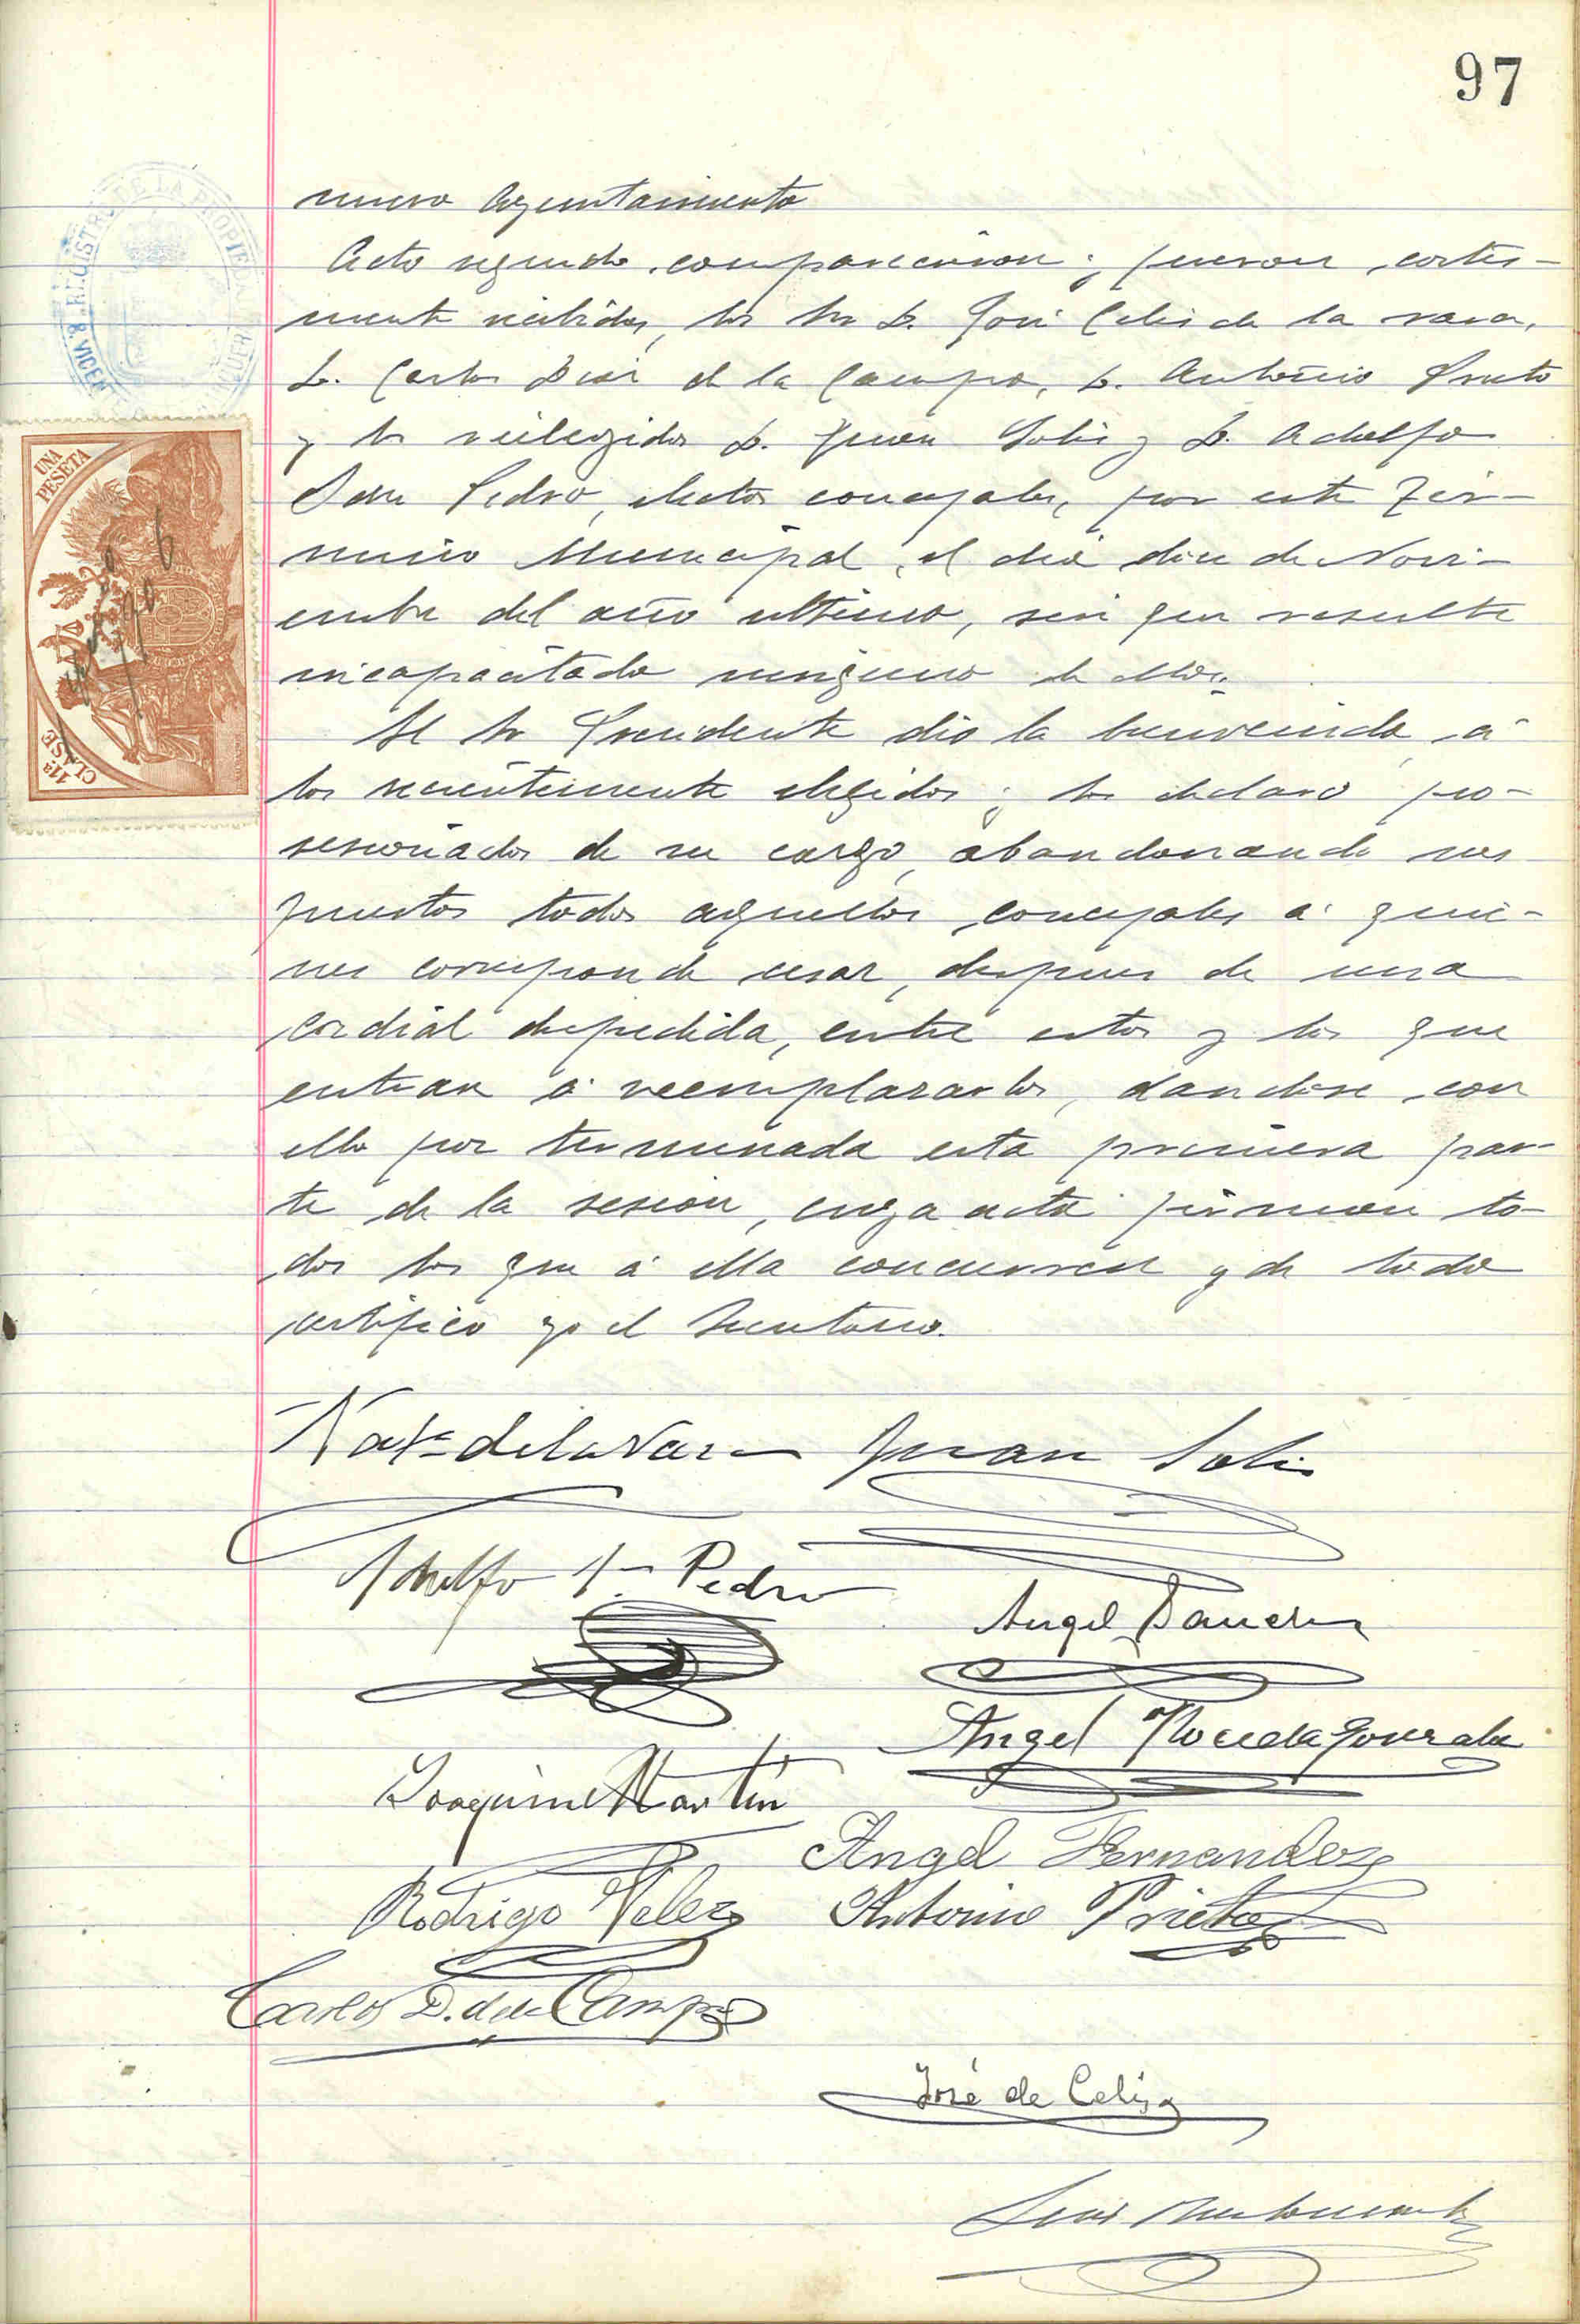 97
nuevo Ayuntamiento
Acto seguido comparecieron y fueron cortes-
mente recibidos, los Srs D. José Celis de la vara,
D. Carlos Diaz de la Campa, D. Antonio Prieto
y los reelegidos D. Juan Solis y D. Adolfo
San Pedro, electos concejales, por este Tér-
mino Municipal, el dia doce de Novi-
embre del año ultimo, sin que resulte
incapacitado ninguno de ellos.
El Sr Presidente dio la bienvenida á
los recientemente elegidos y los declaró po-
sesionados de su cargo, abandonando sus
puestos todos aquellos concejales á quie-
nes corresponde cesar, despues de una
cordial despedida, entre estos y los que
entran á reemplazarlos, dandose con
ello por terminada esta primera par-
te de la sesion, cuya acta firman to-
dos los que á ella concurren y de todo
certifico yo el Secretario.
de la Vara Juan Solis
Adolfo Sn Pedro
Angel
Angel Noceda Gonzalez
Joaquin Martin
Angel Fernandez
Rodrigo Velez Antonio Prieto
Carlos D. de la Campa
José de Celis
Luis
REGISTRO DE LA PROPIEDAD
S. VICEN
UNA
PESETA
1906
11ª
CLASE